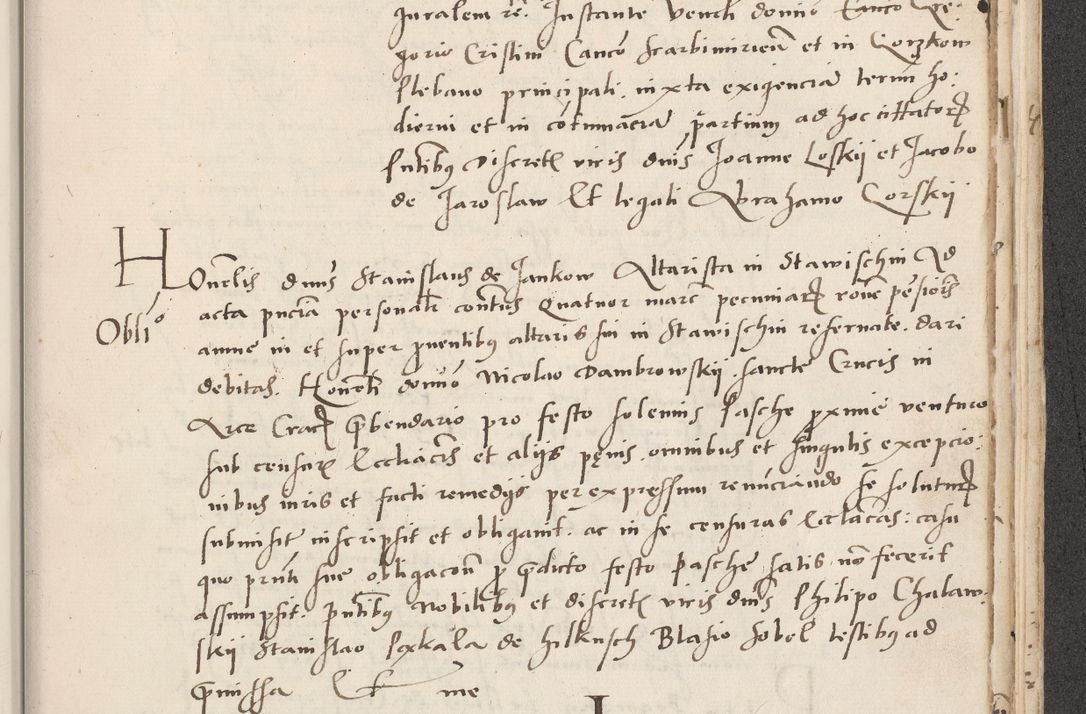 Juralem re. Instante venebli domino
gorio Cristini Canco Scarbimirien et in Gorzkow
Plebano principali. iuxta exigencia termi ho:
dierni et in cotumacia partium ad hoc cittator
Pntibus Discretis viris dnis Joanne Loskij et Jacobo
de Jaroslaw Et legali Abrahamo Gorskij
Honelis dnus Stanislaus de Jankow Altarista in Stawischin Ad
Oblio
acta pncia personalr contus Quatuor marc pecuniar rone pensionis
anne in et super pventibus altaris sui in Stawischin reservate. dari
debitas. Honorbli domino Nicolao Dambrowskij. sancte Crucis in
Arce Crac pbendario pro festo solennis Pasche pxime venturo
sub censuris Ecclacis et alijs penis. omnibus et singulis excepcio:
nibus iuris et facti remedijs per expressum renunciando se soluturum
submisit inscripsit et obligavit. ac in se censuras Ecclacas: casu
quo prnti sue obligacon p pdicto festo Pasche satis non fecerit
assumpsit. Pntibus Nobilibus et discretis viris dnis Philipo Chalaw:
skij Stanislao Pexkala de hilkusch Blasio Sobol testibus ad
pmissa Et me